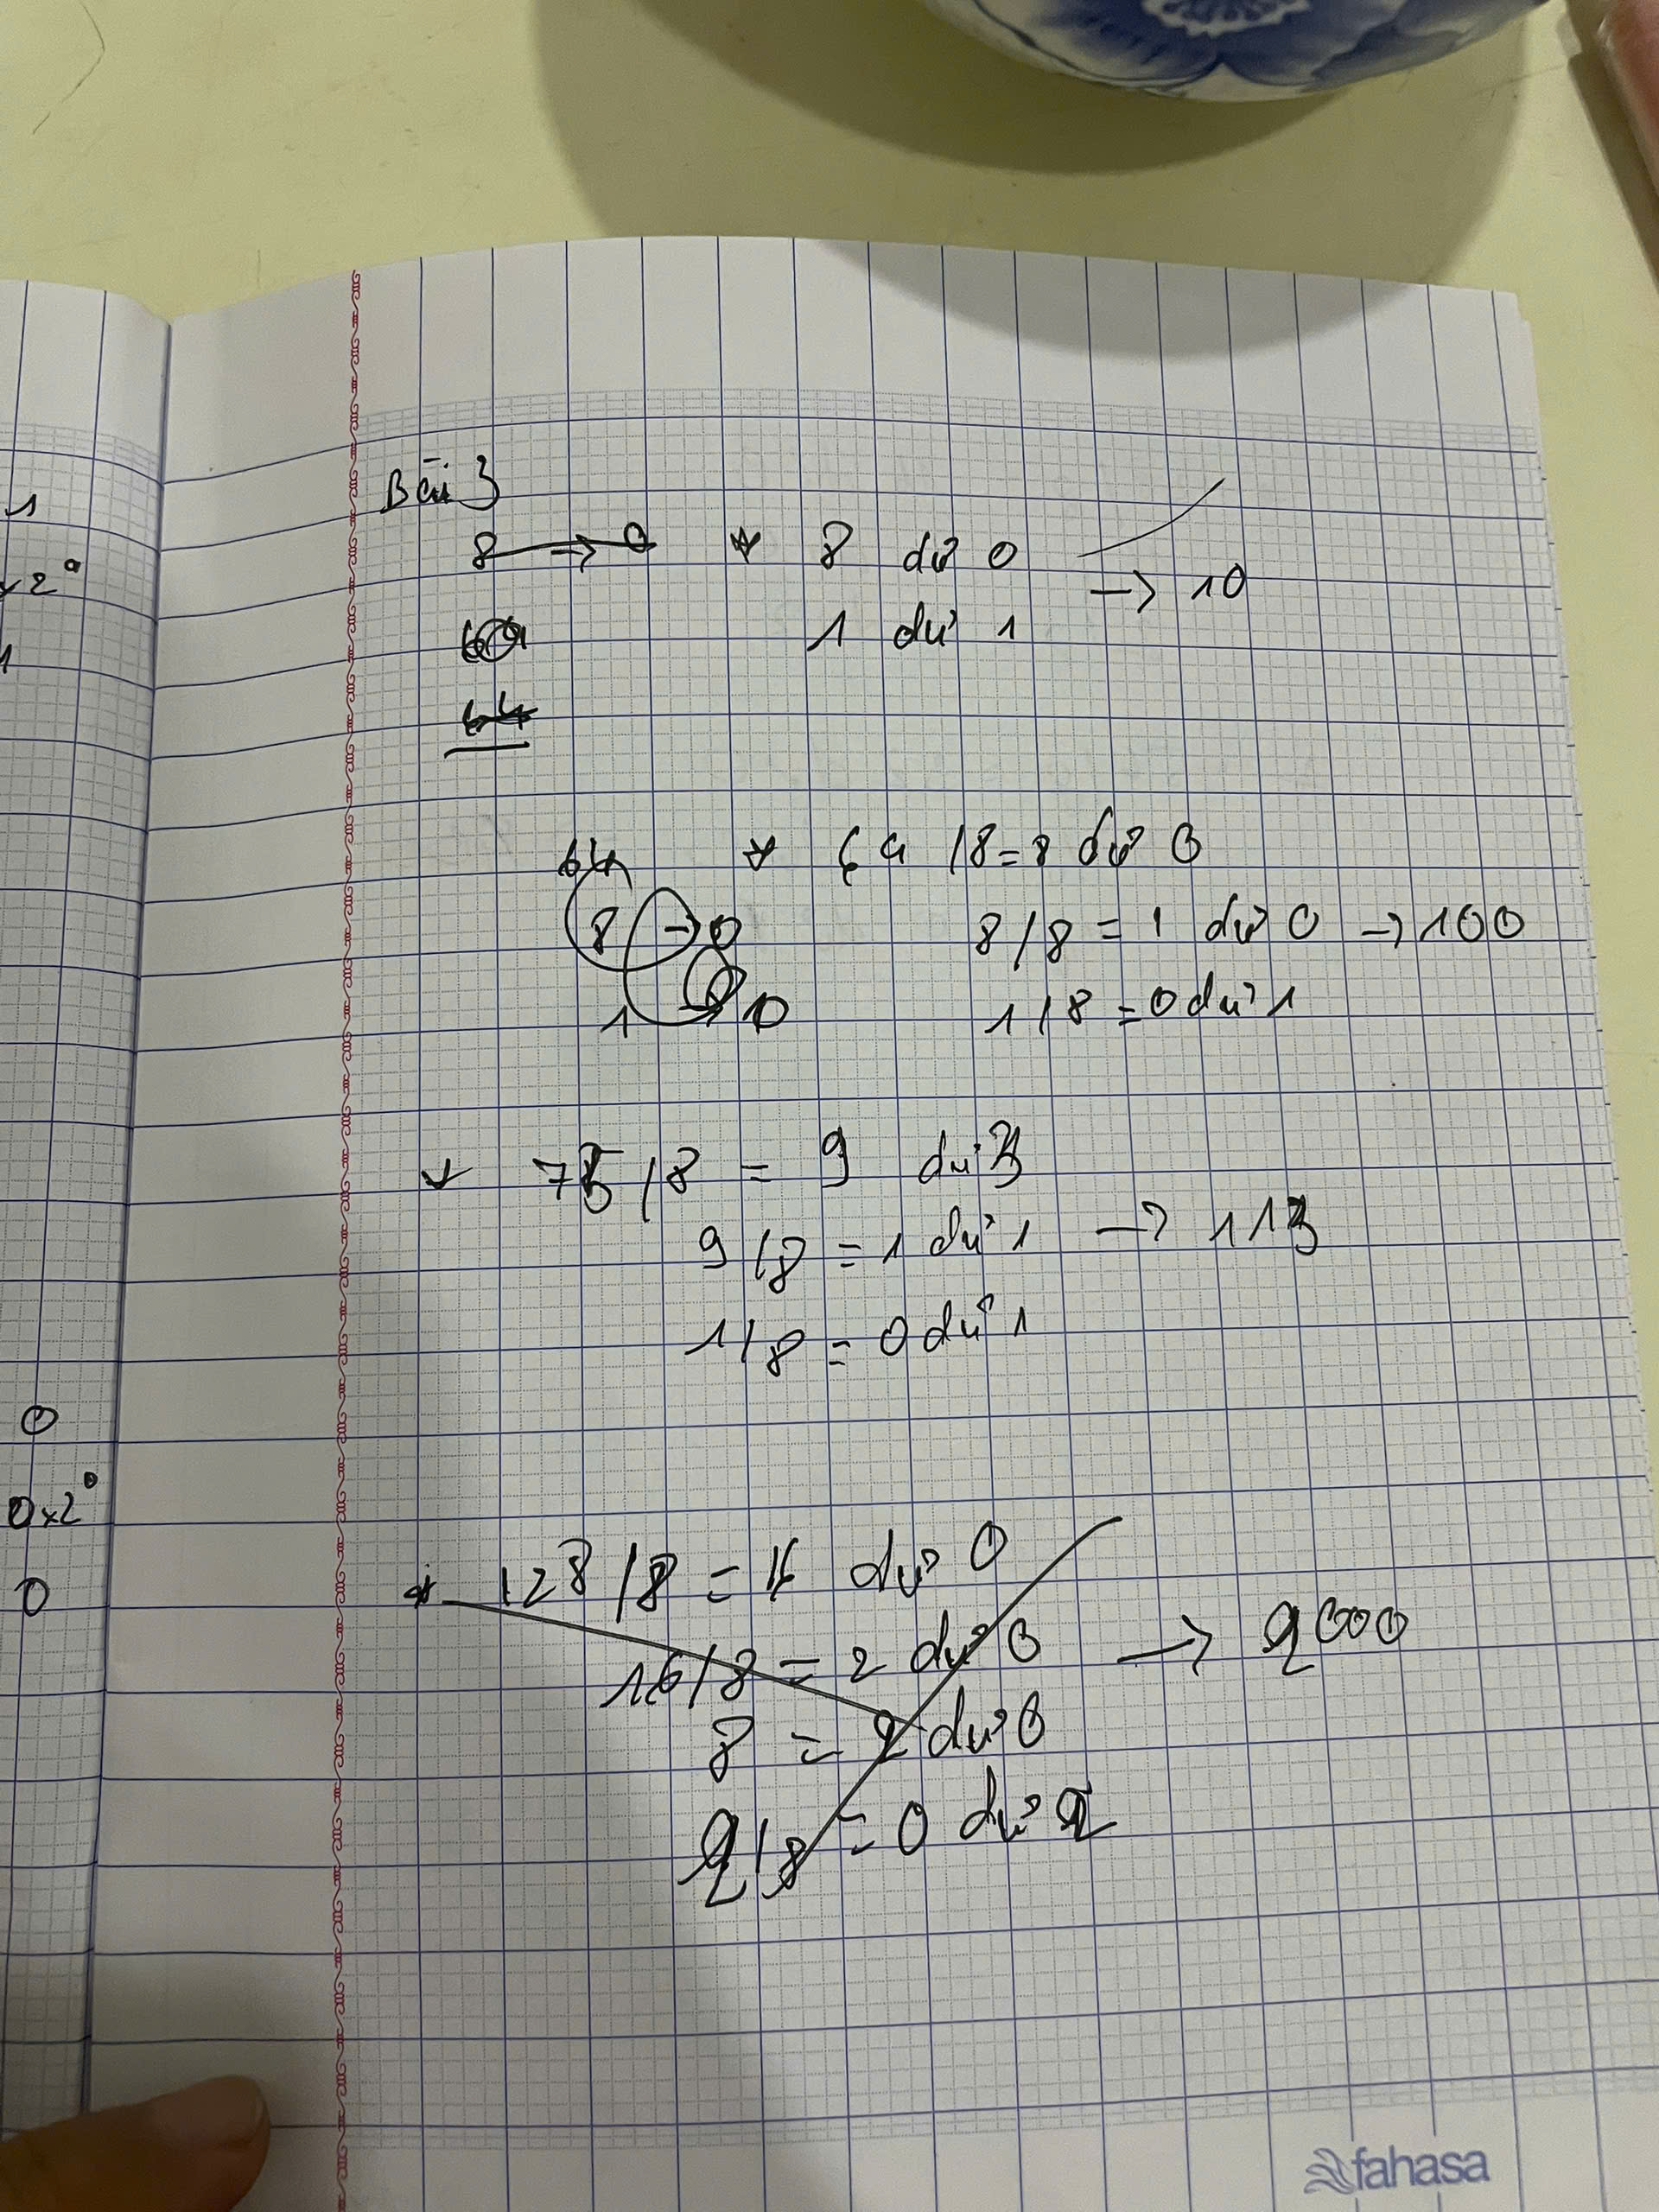 1
x2⁰
1
0
0x2⁰
0
Bài 3
8 → 0
* 8 dư 0
→ 10
1 dư 1
64
64
8 → 0
1 → 10
* 64 /8 = 8 dư 0
8/8 = 1 dư 0 → 100
1/8 = 0 dư 1
* 75/8 = 9 dư 3
9/8 = 1 dư 1 → 113
1/8 = 0 dư 1
* 128/8 = 16 dư 0
16/8 = 2 dư 0 → 2000
8 = 2 dư 0
2/8 = 0 dư 2
fahasa